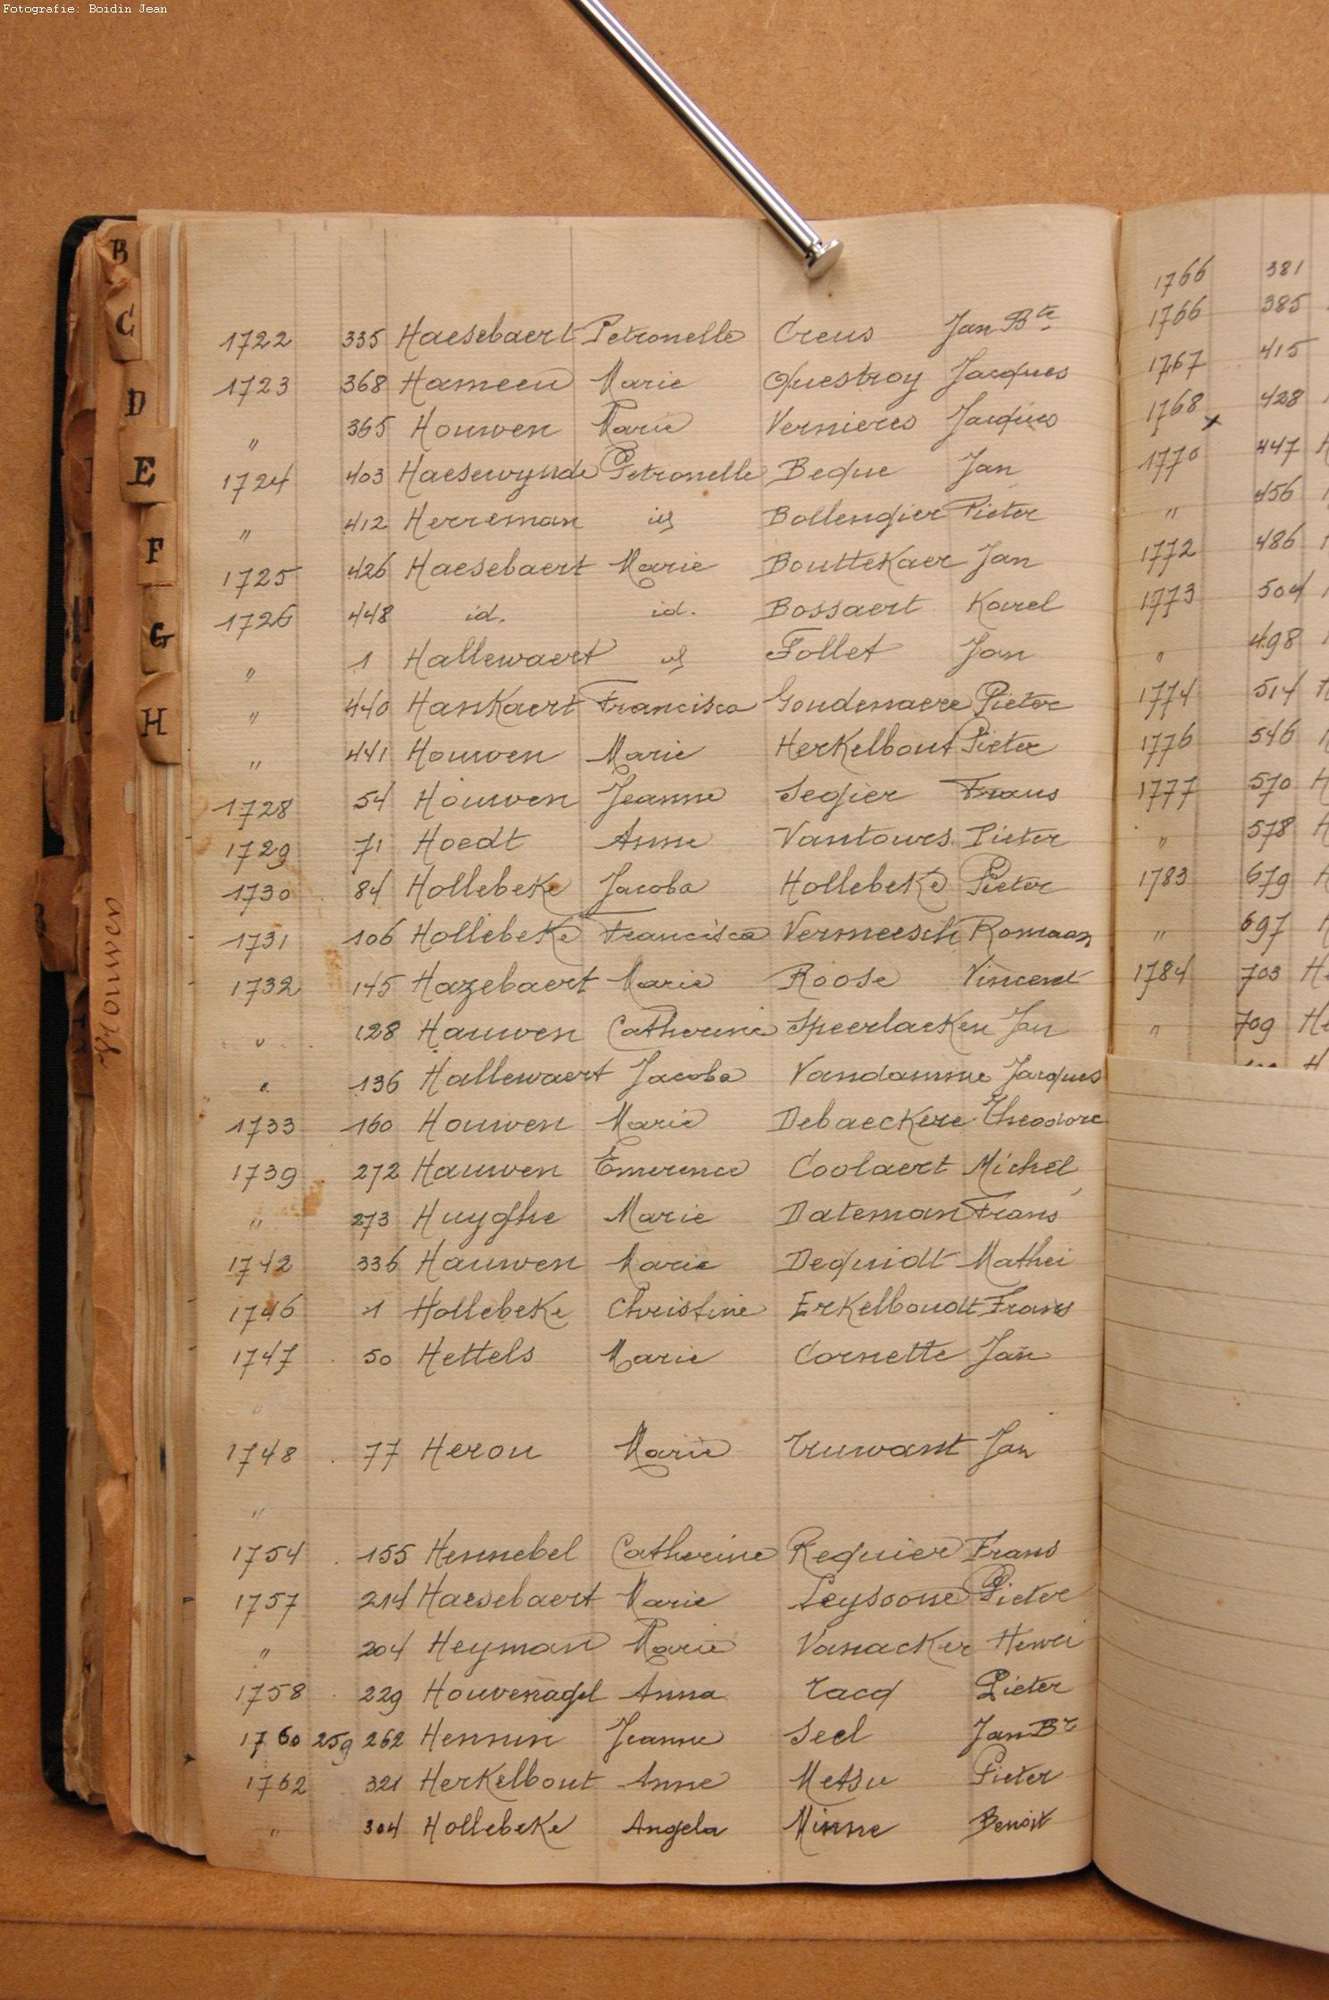 Fotografie: Boidin Jean
B
C
D
E
F
G
H
Houwen
1722 335 Haesebaert Petronelle Creus Jan Bte
1723 368 Hameeu Marie Questroy Jacques
" 365 Houwen Marie Vernieres Jacques
1724 403 Haesewynde Petronelle Beque Jan
" 412 Herreman id Bollengier Pieter
1725 426 Haesebaert Marie Bouttekaer Jan
1726 448 id. id. Bossaert Karel
" 1 Hallewaert id Follet Jan
" 440 Hankaert Francisca Goudenaere Pieter
" 441 Houwen Marie Herkelbout Pieter
1728 54 Houwen Jeanne Segier Frans
1729 71 Hoedt Anne Vantours Pieter
1730 84 Hollebeke Jacoba Hollebeke Pieter
1731 106 Hollebeke Francisca Vermeesch Romaan
1732 145 Hazebaert Marie Roose Vincent
" 128 Hauwen Catherine Speerlaeken Jan
" 136 Hallewaert Jacoba Vandamme Jacques
1733 160 Houwen Marie Debaeckere Theodore
1739 272 Hauwen Emerence Coolaert Michel
" 273 Huyghe Marie Dateman Frans
1742 336 Hauwen Marie Dequidt Mathei
1746 1 Hollebeke Christine Erkelboudt Frans
1747 50 Hettels Marie Cornette Jan
"
1748 77 Herou Marie Truwant Jan
"
1754 155 Hennebel Catherine Requier Frans
1757 214 Haesebaert Marie Leysoone Pieter
" 204 Heyman Marie Vanacker Henri
1758 229 Houvenagel Anna Tacq Pieter
1760 259 262 Hennin Jeanne Seel Jan Bt
1762 321 Herkelbout Anne Metsu Pieter
" 304 Hollebeke Angela Minne Benoit
1766 381
1766 385
1767 415
1768 x 428
1770 447 H
" 456
1772 486
1773 504
" 498
1774 514 H
1776 546
1777 570 H
" 578 H
1783 679 H
" 697 H
1784 703 He
" 709 He
H